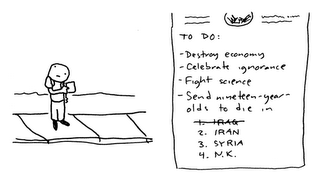 TO DO:
-Destroy economy
-Celebrate ignorance
-Fight science
-Send nineteen-year-
olds to die in
1. IRAQ
2. IRAN
3. SYRIA
4. N.K.